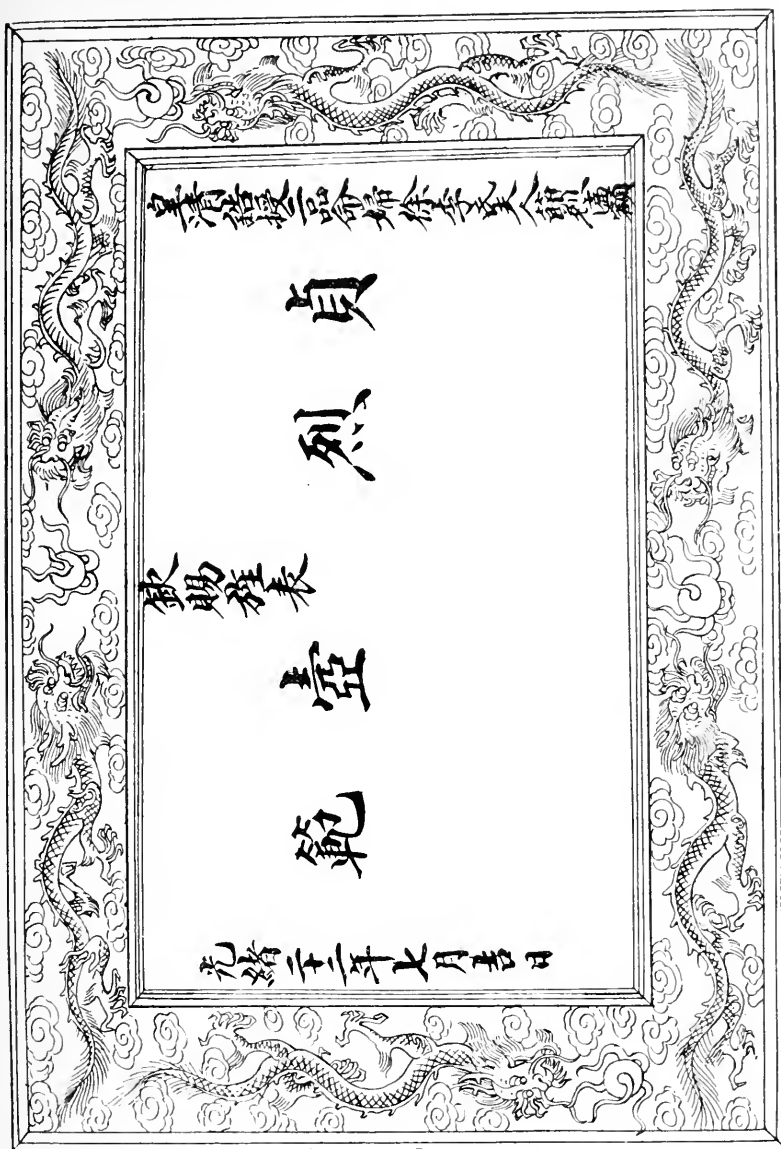 皇清誥授一品命婦徐李夫人
貞烈壼範
欽賜旌表
光緒二十二年七月吉日